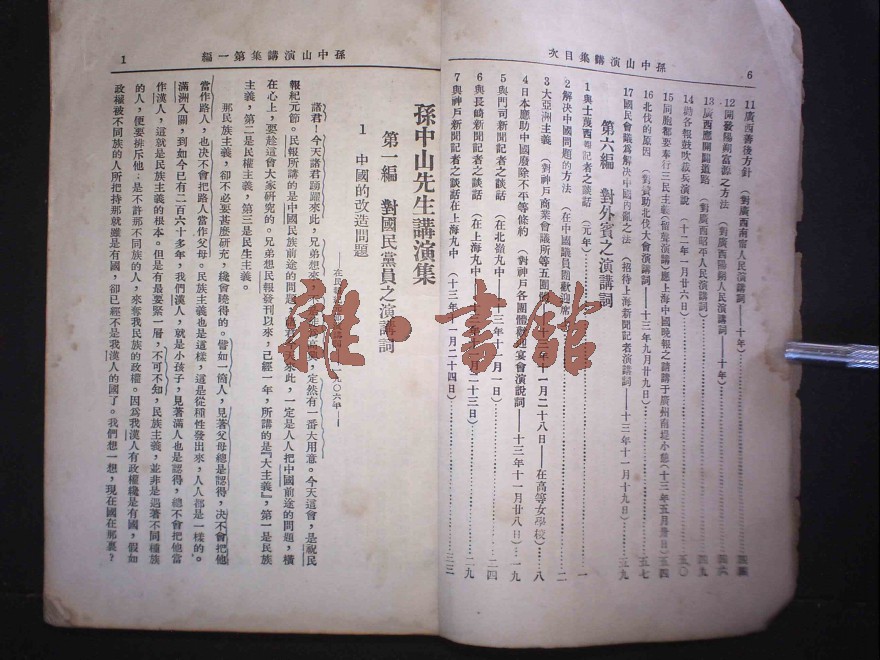 孫中山演講集目次
6
11 廣西善後方針 (對廣西南甯人民演講詞——十年)
12 開發陽朔富源之方法 (對廣西陽朔人民演講詞——十年)
13 廣西應開闢道路 (對廣西昭平人民演講詞)
14 勗各報鼓吹裁兵演說 (十二年一月廿六日) 五〇
15 同胞都要奉行三民主義(留聲演講)應上海中國晚報之請講于廣州南堤小憩(十三年五月卅日) 五四
16 北伐的原因 (對贊助北伐大會演講詞——十三年九月廿九日) 五七
17 國民會議為解決中國內亂之法 (招待上海新聞記者演講詞——十三年十一月十九日) 五九
第六編 對外賓之演講詞
1 與士蔑西報記者之談話 (元年) 一
2 解決中國問題的方法 (在中國議員團歡迎席 二
3 大亞洲主義 (對神戶商業會議所等五團體 十三年十一月二十八日——在高等女學校) 八
4 日本應助中國廢除不平等條約 (對神戶各團體歡迎宴會演說詞——十三年十一月廿八日) 一九
5 與門司新聞記者之談話 (在北嶺丸中——十三年十二月一日) 二四
6 與長崎新聞記者之談話 (在上海丸中 月二十三日) 二九
7 與神戶新聞記者之談話在上海丸中 (十三年十一月二十四日) 三三
孫中山演講集第一編
1
孫中山先生講演集
第一編 對國民黨員之演講詞
1 中國的改造問題
一九〇六年——
諸君!今天諸君踴躍來此,兄弟想來, 定然有一番大用意。今天這會,是祝民
報紀元節。民報所講的是中國民族前途的問題, 來此,一定是人人把中國前途的問題,橫
在心上,要趁這會大家研究的。兄弟想民報發刊以來,已經一年,所講的是『大主義』,第一是民族
主義,第二是民權主義,第三是民生主義。
那民族主義,卻不必要甚麼研究,纔會曉得的。譬如一箇人,見著父母總是認得,決不會把他
當作路人,也決不會把路人當作父母。民族主義也是這樣,這是從種性發出來,人人都是一樣的。
滿洲入關,到如今已有二百六十多年,我們漢人,就是小孩子,見著滿人也是認得,總不會把他當
作漢人,這就是民族主義的根本。但是有最要緊一層,不可不知,民族主義,並非是遇著不同種族
的人,便要排斥他:是不許那不同族的人,來奪我民族的政權。因為我漢人有政權纔是有國,假如
政權被不同族的人所把持那就雖是有國,卻已經不是我漢人的國了。我們想一想,現在國在那裏?
雜·書館